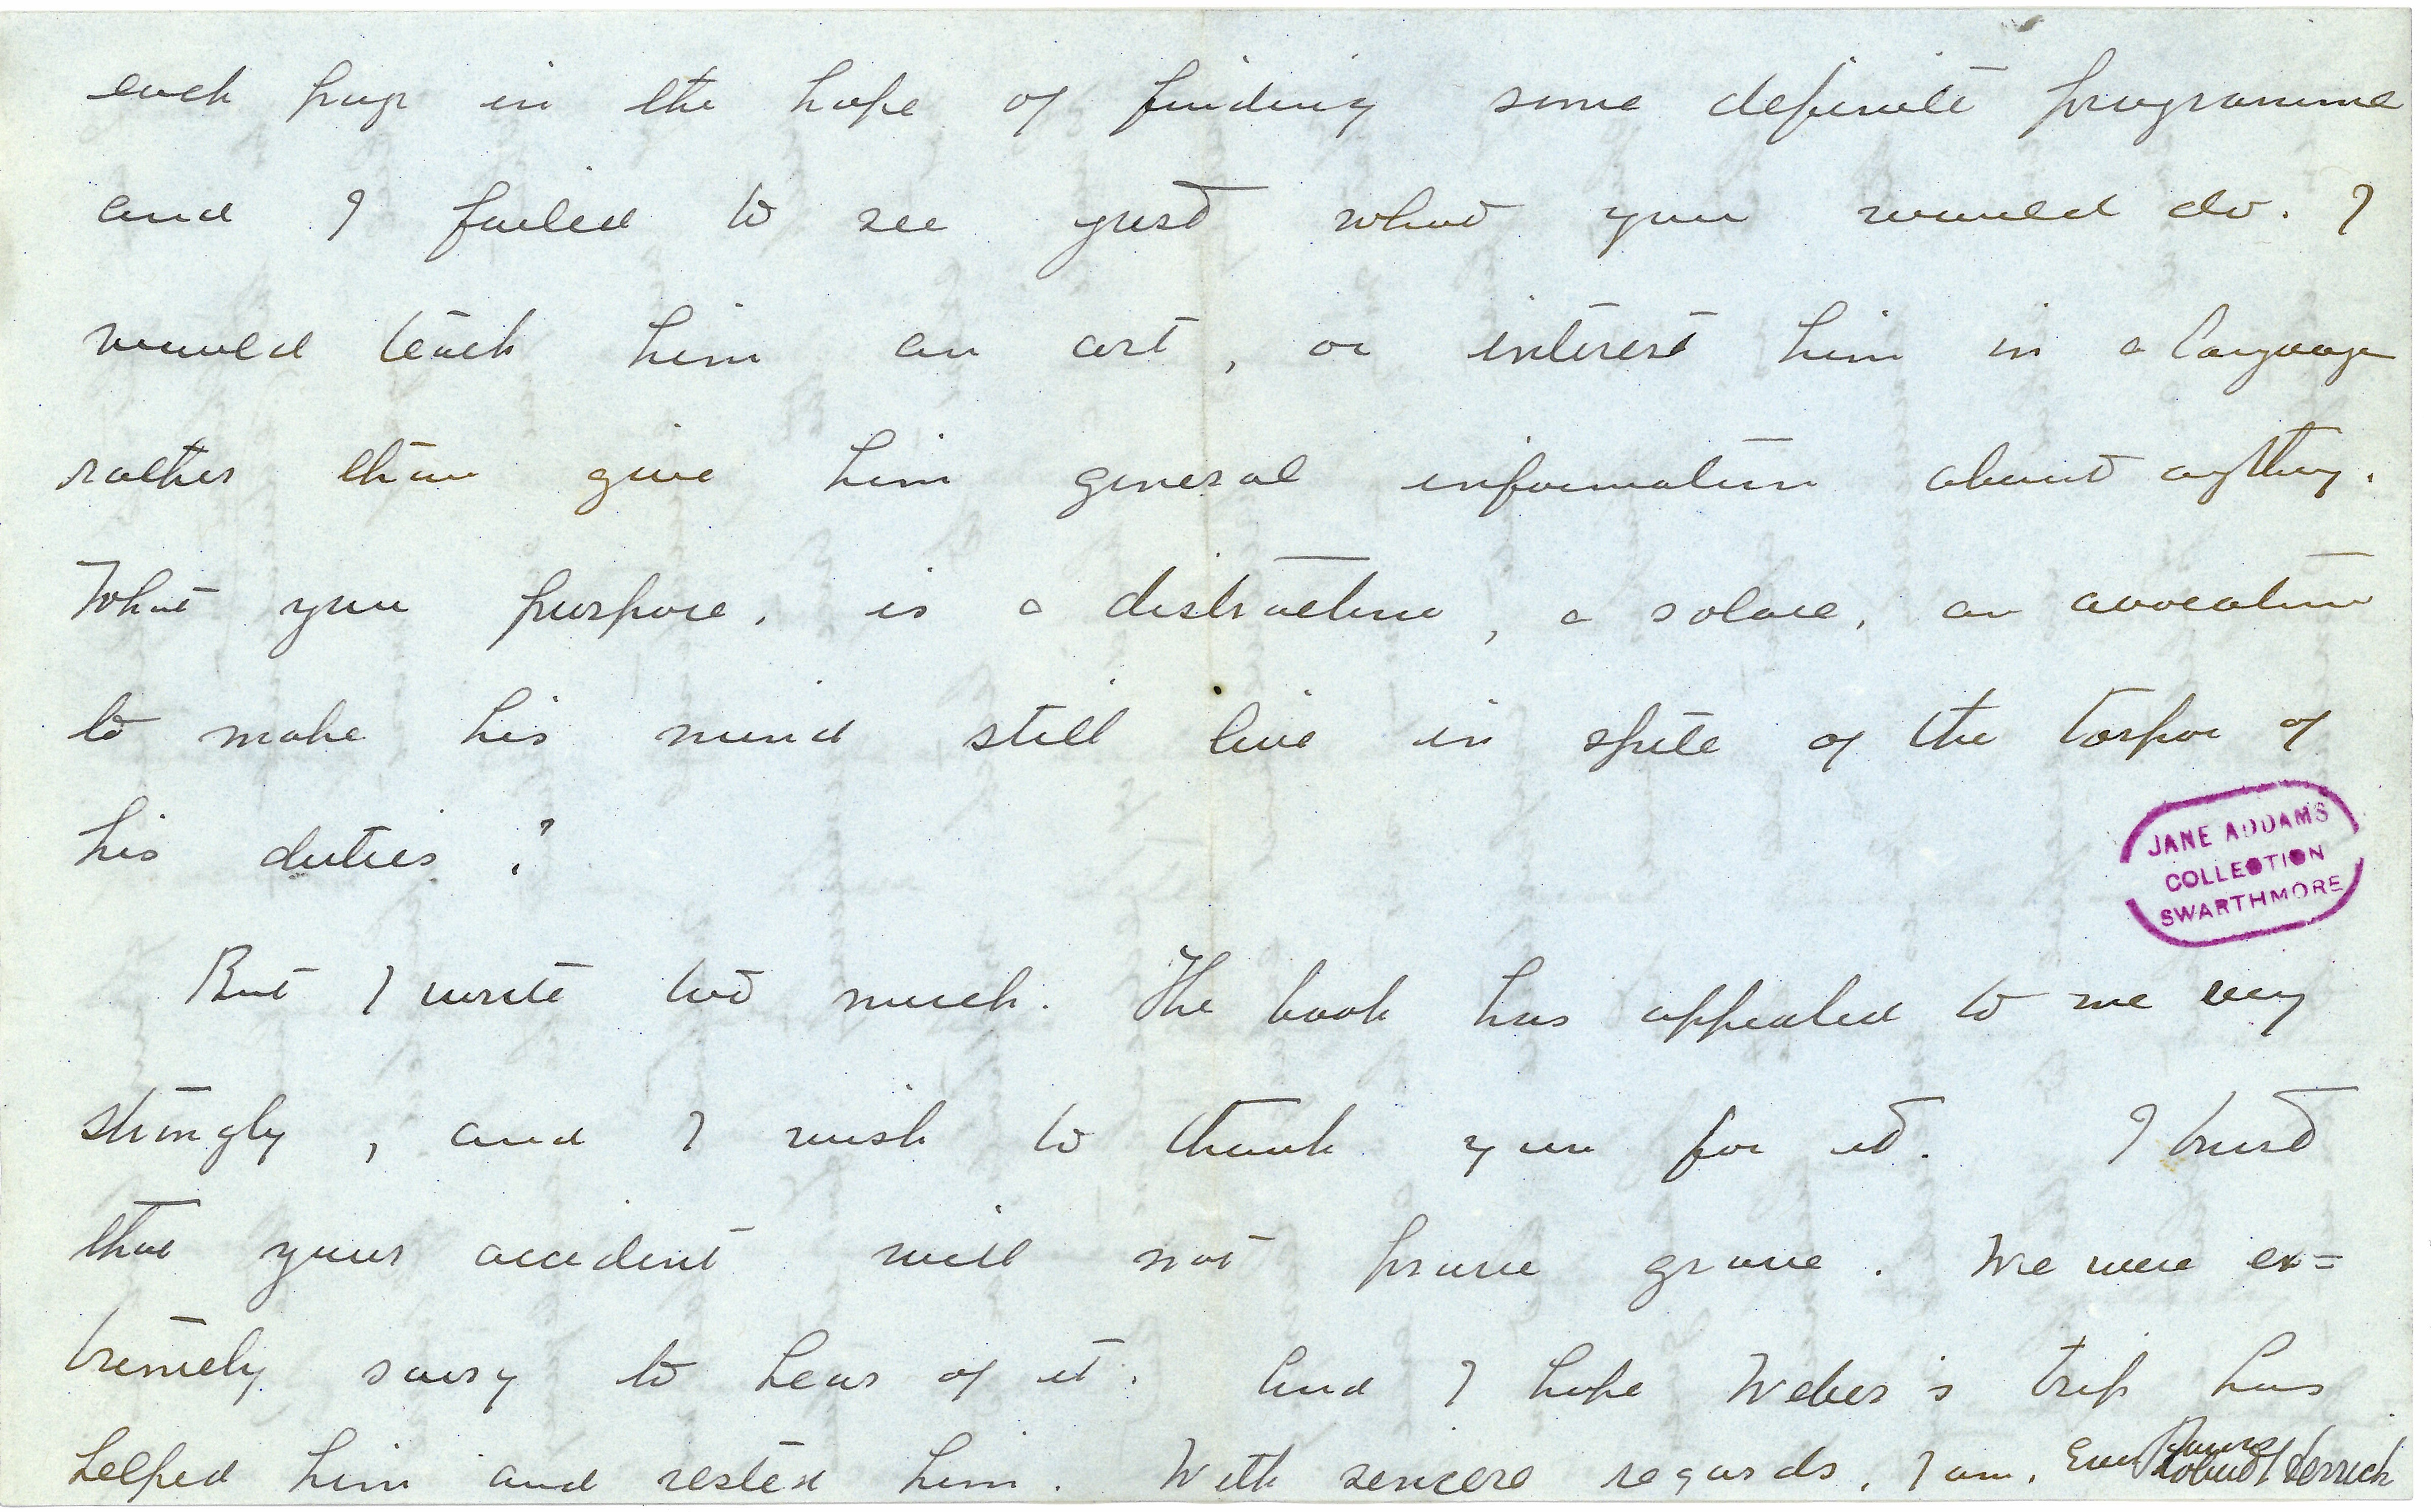 each page in the hope of finding some definite programme
and I failed to see just what you would do. I
would teach him an art, or interest him in a language
rather than give him general information about anything.
What you purpose, is a distraction, a solace, an avocation
to make his mind still live in spite of the torpor of
his duties?
JANE ADDAMS
COLLECTION
SWARTHMORE
But I write too much. The book has appealed to me very
strongly, and I wish to thank you for it. I trust
that your accident will not prove grave. We were ex=
tremely sorry to hear of it. And I hope Weber's trip has
helped him and rested him. With sincere regards, I am, Yours
Robert Herrick